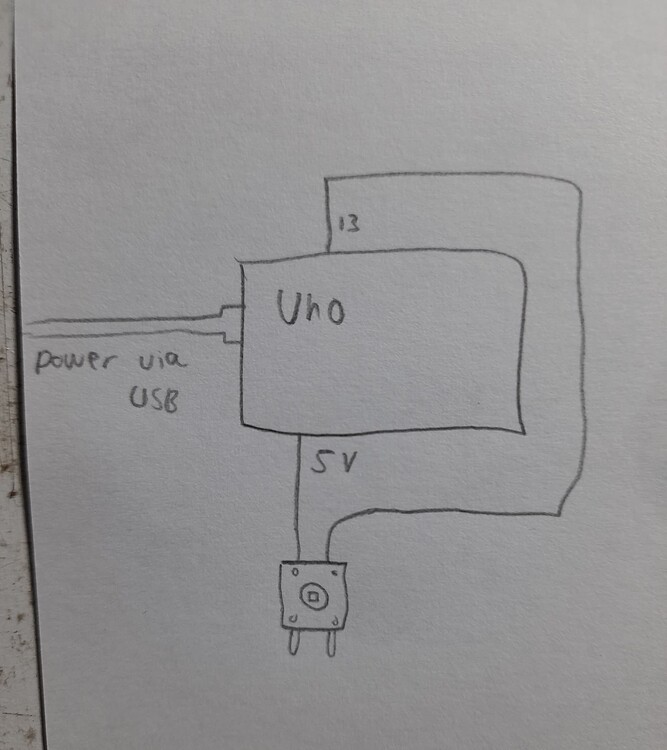 13
Uno
power via
USB
5V